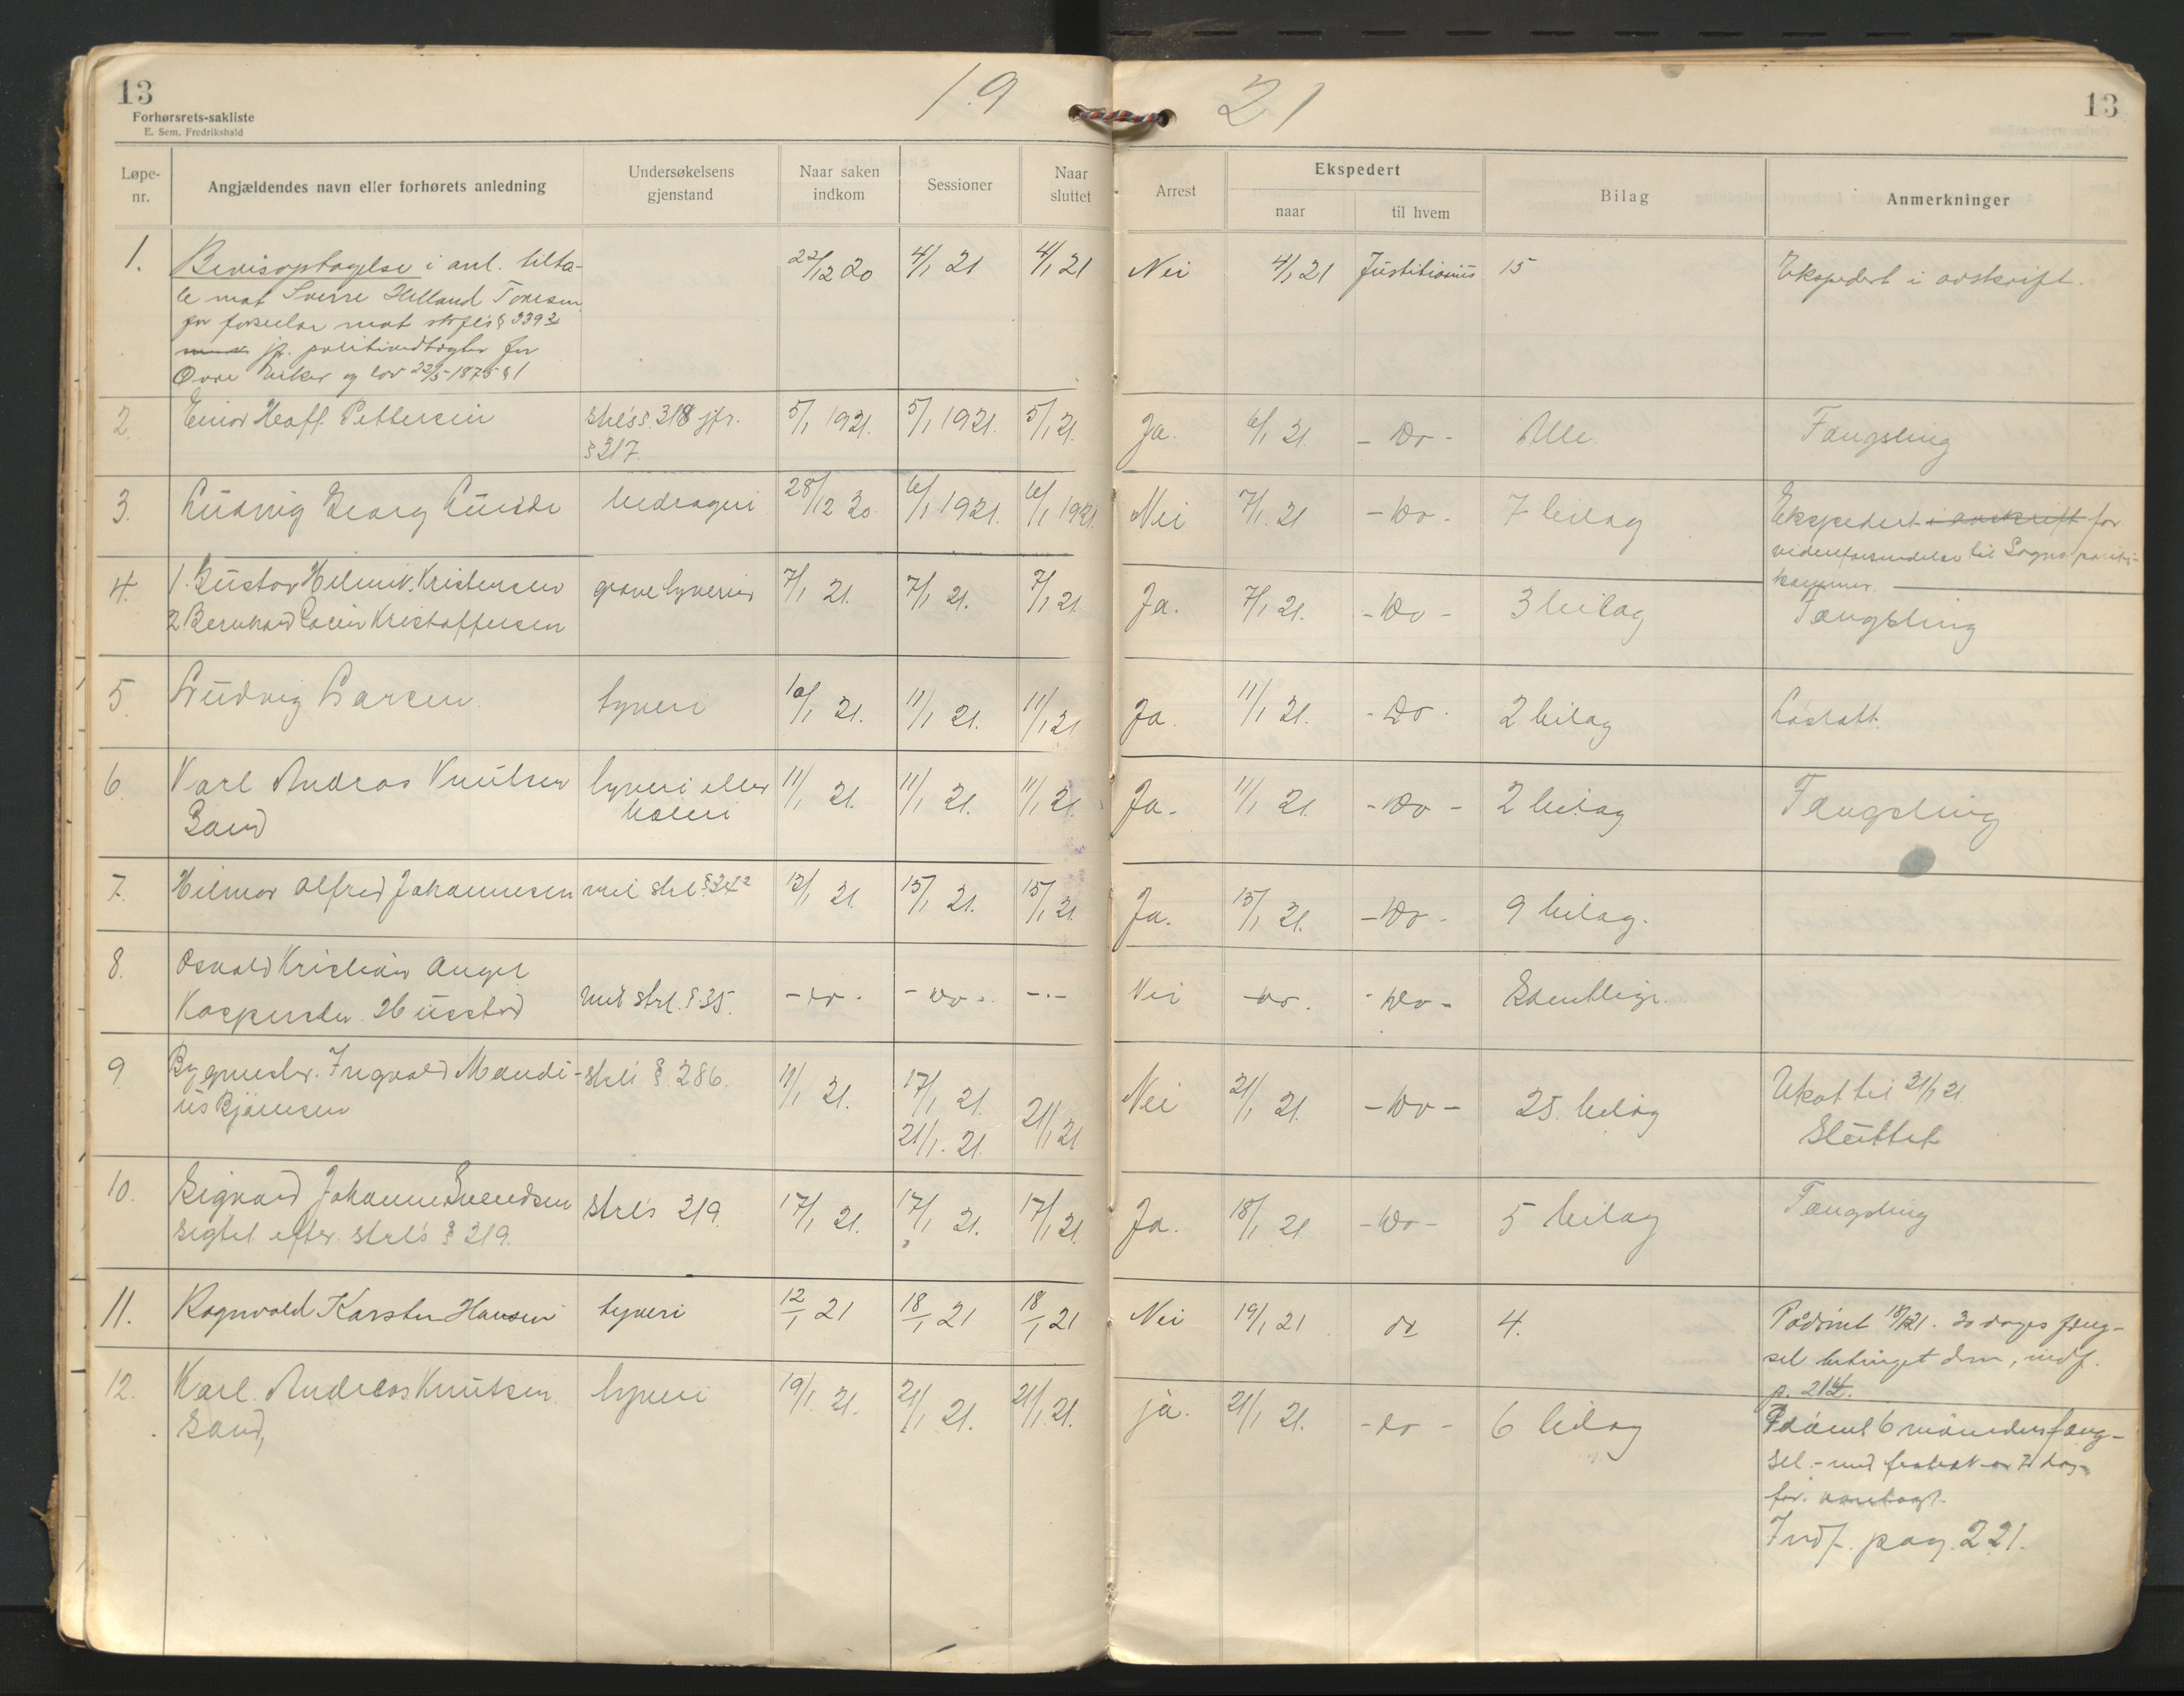 13
Forhørsrets-sakliste
E. Sem, Fredrikshald
19
21
13
Løpe-nr.
Angjældendes navn eller forhørets anledning
Undersøkelsens gjenstand
Naar saken indkom
Sessioner
Naar sluttet
Arrest
Ekspedert
naar
til hvem
Bilag
Anmerkninger
1. Bevisoptagelse i anl. tilta- 22/12 20 4/1 21 4/1 21 Nei 4/1 21 Justitiarius 15 Ekspedert i avskrift.
le mot Sverre Helland
for mot § 339 2
jfr. politivedtægter for
Øvre Eiker og lov 22/5-1875 § 1
2. Einar Pettersen § 318 jfr. 5/1 1921. 5/1 1921. 5/1 21. Ja. 6/1 21. - Do - Alle Fængsling
§ 317.
3. Ludvig Georg bedrageri 28/12 20. 6/1 1921. 6/1 1921. Nei 7/1. 21 - Do - 7 bilag Ekspedert i avskrift for
videreforsendelse til politi-
kammer
4. 1. Gustav Kristensen grove tyverier 7/1 21. 7/1 21. 7/1 21. Ja. 7/1 21. - Do - 3 bilag Fængsling
2. Bernhard Kristoffersen
5. Ludvig Larsen tyveri 10/1 21. 11/1 21. 11/1 21 Ja. 11/1 21. - Do - 2 bilag Løslatt.
6. Karl Andreas Knutsen tyveri eller 11/1 21. 11/1 21. 11/1 21. Ja. 11/1 21. - Do - 2 bilag Fængsling
Sand heleri
7. Hilmar Alfred Johannesen mil strl § 34 2 12/1 21. 15/1 21. 15/1 21. Ja. 15/1 21. - Do - 9 bilag.
8. Osvald Kristian August
Kaspersen Husstad mil strl. § 35. - do - - do - - " - Nei - do - - Do - Samtlige.
9. Bygmester. Ingvald Mandi- strl's § 286. 11/1 21. 17/1 21. Nei 21/1 21. - Do - 25 bilag Utsat til 21/1 21.
us Bjørnsen 21/1. 21. 21/1 21 Sluttet
10. Sigvard Johannes Svendsen strl's 219. 17/1 21. 17/1 21. 17/1 21. Ja. 18/1 21 - Do - 5 bilag Fængsling
sigtet efter strl's § 219.
11. Ragnvald Karsten Hansen tyveri 12/1 21 18/1 21 18/1 21 Nei 19/1 21 do 4. Pådømt 18/1 21. 30 dages fæng-
sel betinget dom, indf.
p. 214.
12. Karl Andreas Knutsen tyveri 19/1. 21. 21/1 21. 21/1 21. ja. 21/1 21. - do - 6 bilag Pådømt 6 måneders fæng-
Sand, sel. - med fradrag av dag
for
Indf. pag. 221.